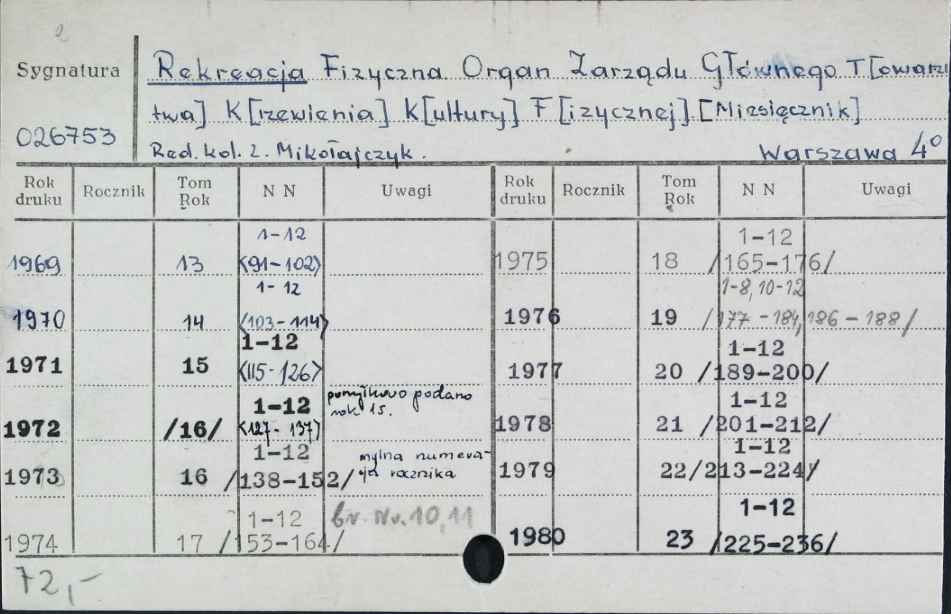 Sygnatura
026753
Rekreacja Fizyczna Organ Zarządu Głównego T[owarzy
twa] K[rzewienia] K[ultury] F[izycznej] [Miesięcznik]
Red. kol. Z. Mikołajczyk. Warszawa 4°
Rok druku Rocznik Tom Rok N N Uwagi Rok druku Rocznik Tom Rok N N Uwagi
1969 13 1-12 <91-102>
1970 14 1-12 <103-114>
1971 15 1-12 <115-126>
1972 /16/ 1-12 <127-137> pomyłkowo podano rok 15.
1973 16 1-12 /138-152/ mylna numeracja rocznika
1974 17 1-12 /153-164/ br. Nr. 10, 11
1975 18 1-12 /165-176/
1976 19 1-8, 10-12 /177-184, 186-188/
1977 20 1-12 /189-200/
1978 21 1-12 /201-212/
1979 22 1-12 /213-224/
1980 23 1-12 /225-236/
72,-